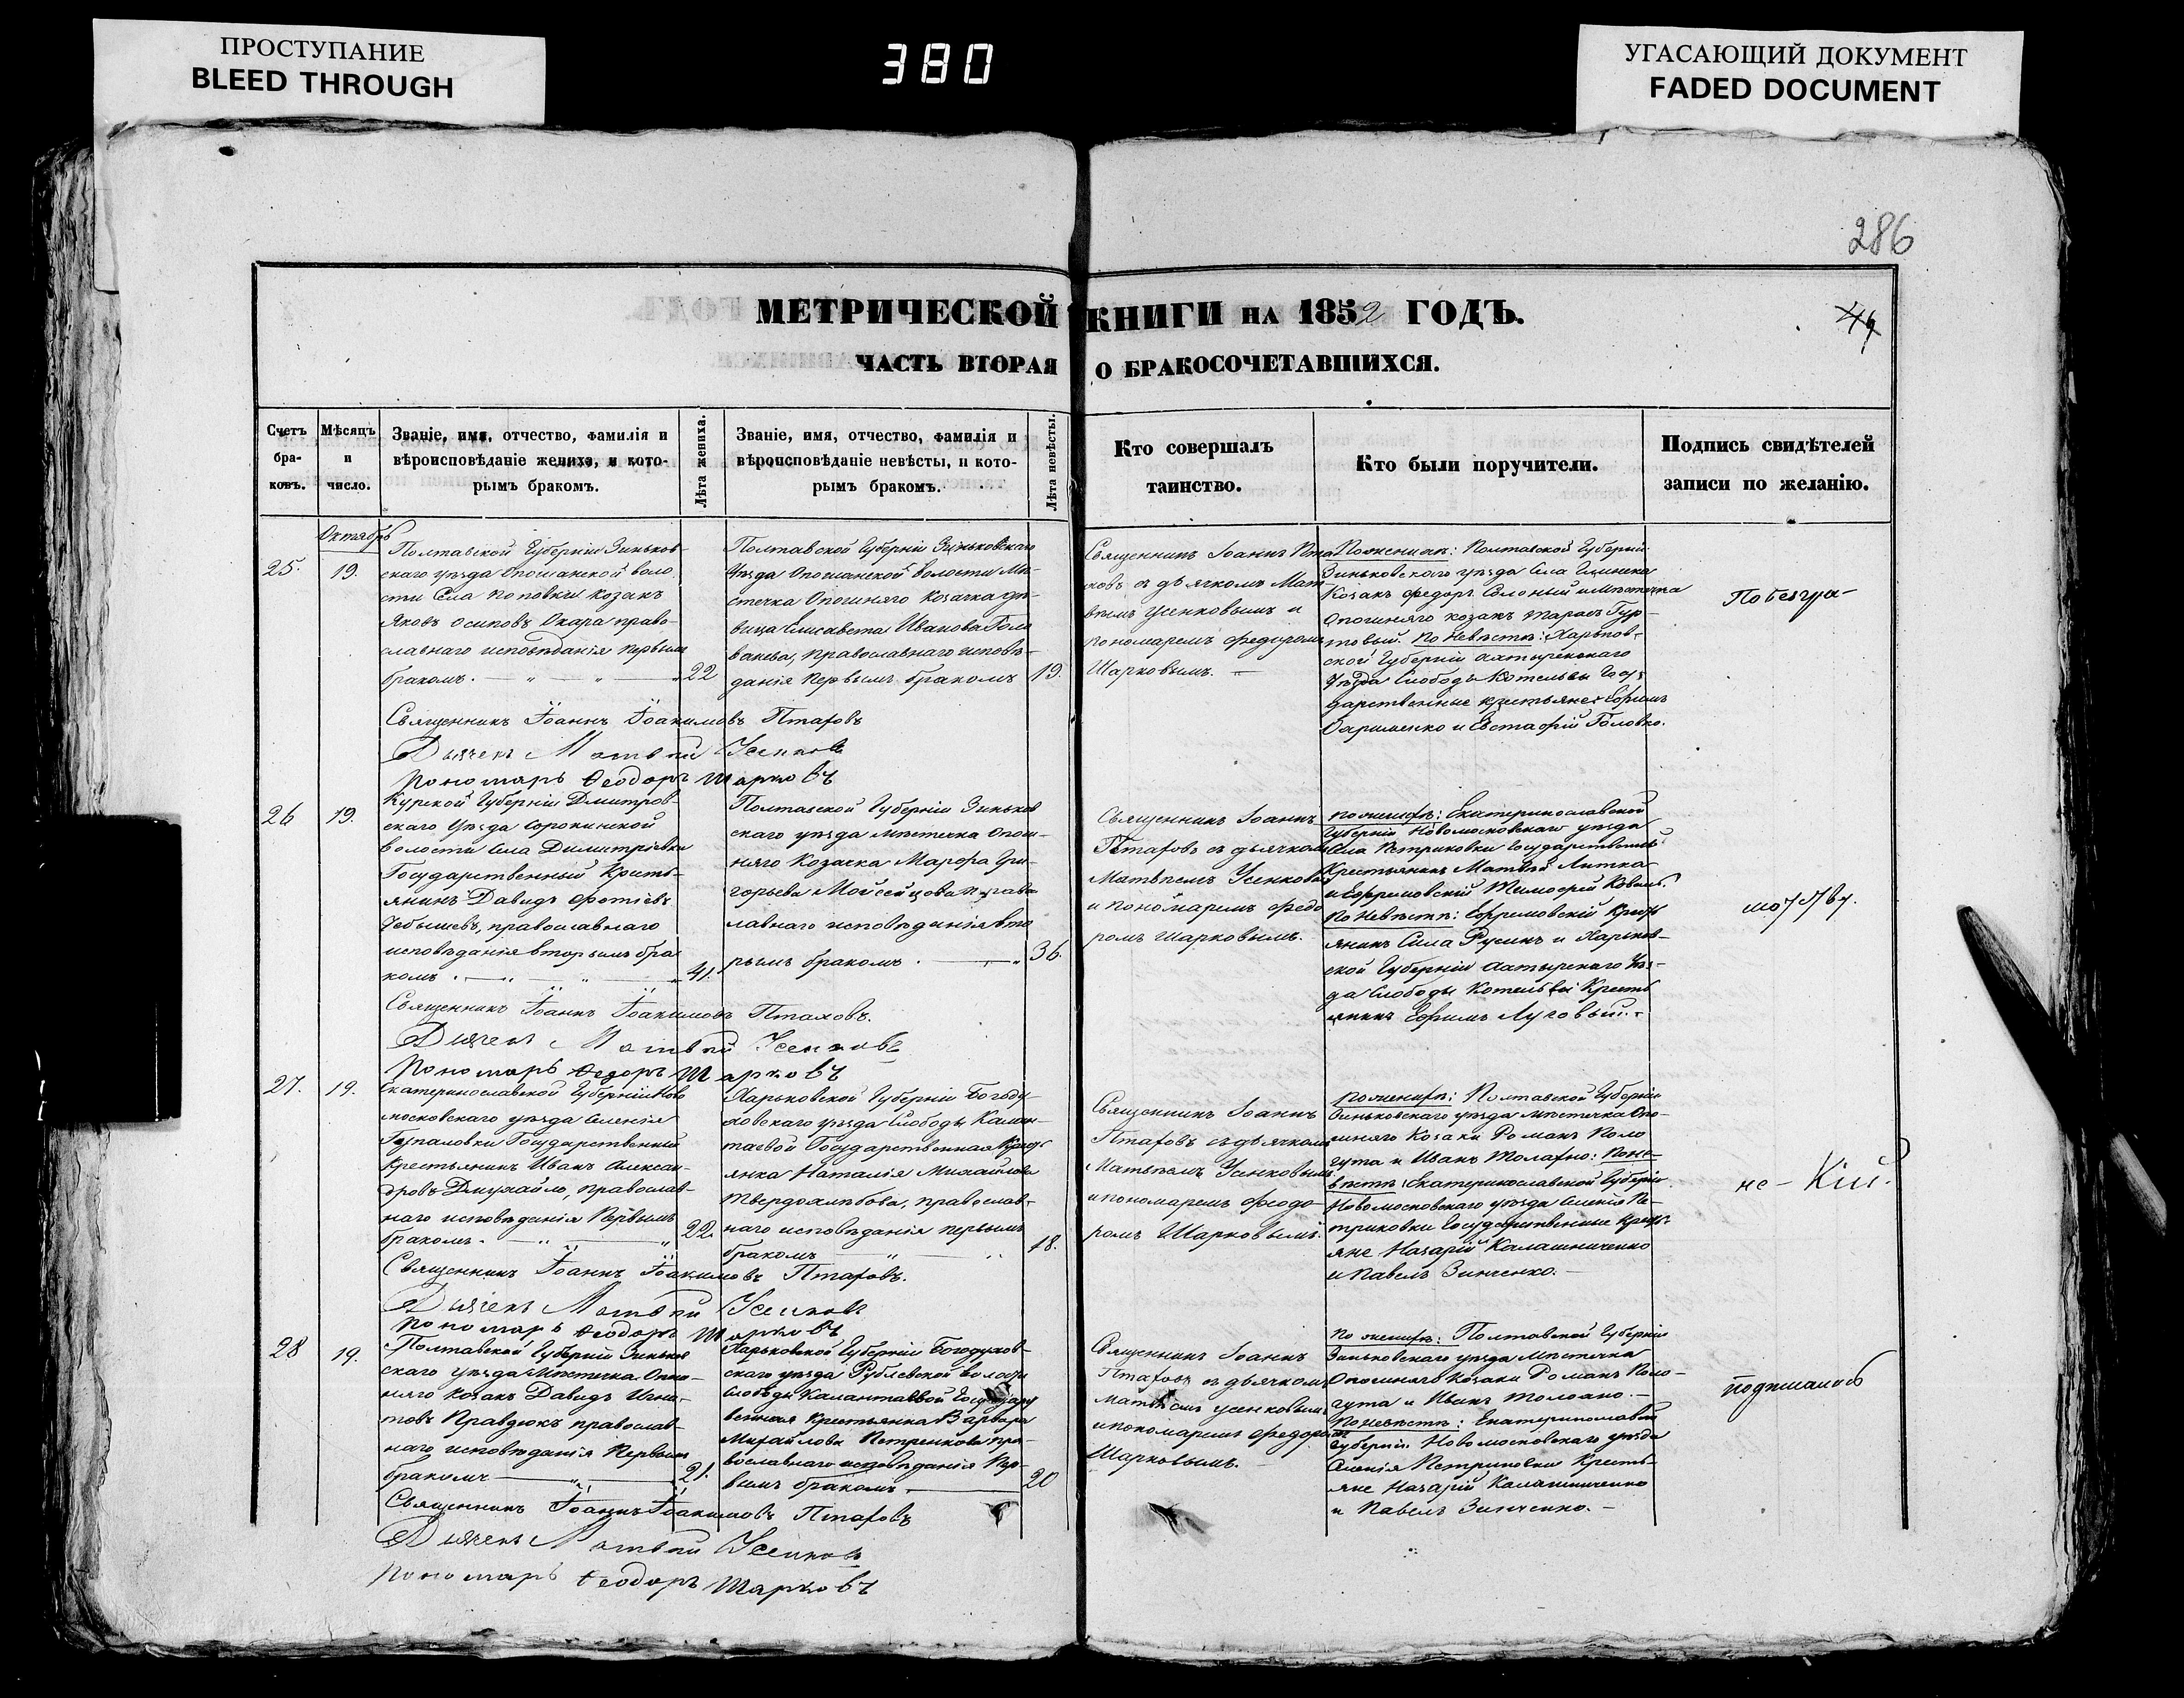 ПРОСТУПАНИЕ
BLEED THROUGH
380
УГАСАЮЩИЙ ДОКУМЕНТ
FADED DOCUMENT
286
МЕТРИЧЕСКОЙ КНИГИ НА 1852 ГОДЪ.
ЧАСТЬ ВТОРАЯ О БРАКОСОЧЕТАВШИХСЯ.
Счетъ
бра-
ковъ.
Мѣсяцъ
и
число.
Званіе, имя, отчество, фамилія и
вѣроисповѣданіе жениха, и кото-
рымъ бракомъ.
Лѣта жениха.
Званіе, имя, отчество, фамилія и
вѣроисповѣданіе невѣсты, и кото-
рымъ бракомъ.
Лѣта невѣсты.
Кто совершалъ
таинство.
Кто были поручители.
Подпись свидѣтелей
записи по желанію.
Октябрь
25.
19.
Полтавской Губерніи Зиньков-
скаго уѣзда Опошанской воло
сти Села Поповки козакъ
Яковъ Осиповъ Окара право-
славнаго исповѣданія первымъ
бракомъ.
22
Полтавской Губерніи Зиньковскаго
Уѣзда Опошанской волости Мѣ-
стечка Опошняго Козачка дѣ-
вица Елисавета Иванова Голо
вкова, православнаго исповѣ-
данія первымъ бракомъ
19.
Священникъ Іоаннъ Пта
ховъ съ дьячкомъ Мат-
вѣемъ Усенковымъ и
пономаремъ Федоромъ
Шарковымъ.
По женихѣ: Полтавской Губерніи
Зиньковскаго уѣзда Села
Козакъ Федоръ Солоный и Мѣстечка
Опошняго козакъ Тарасъ Гур-
товый. По Невѣстѣ: Харьков-
ской Губерніи Ахтырскаго
Уѣзда Слободы Котельвы Госу-
дарственные крестьяне Ефимъ
и Евстафій Головко.
Священникъ Іоаннъ Іоакимовъ Птаховъ
Дьячекъ Матвѣй Усенковъ
Пономарь Ѳеодоръ Шарковъ
26
19.
Курской Губерніи Дмитров-
скаго Уѣзда Сорокинской
Волости Села Димитріевки
Государственный Кресть-
янинъ Давидъ Фотіевъ
Чебышевъ, православнаго
исповѣданія вторымъ бра
комъ.
41.
Полтавской Губерніи Зиньков
скаго уѣзда мѣстечка Опош-
няго Козачка Марфа Гри-
горьева Мойсейцова право
лавнаго исповѣданія вто
рымъ бракомъ.
36.
Священникъ Іоаннъ
Птаховъ съ дьячкомъ
Матвѣемъ Усенковымъ
и пономаремъ Федо
ромъ Шарковымъ.
По женихѣ: Екатеринославской
Губерніи Новомосковскаго уѣзда
Села Петриковки Государственный
Крестьянинъ Матвѣй Литка
и Ефремовскій Тимофей Коваль.
По Невѣстѣ: Ефремовскій Кресть
янинъ Сила Русинъ и Харьков-
ской Губерніи Ахтырскаго Уѣз-
да Слободы Котельвы Кресть
янинъ Ефимъ Луговый.
Священникъ Іоаннъ Іоакимовъ Птаховъ.
Дьячекъ Матвѣй Усенковъ
Пономарь Ѳедоръ Шарковъ
27.
19.
Екатеринославской Губерніи Ново
московскаго уѣзда Селенія
Гупаловки Государственный
Крестьянинъ Иванъ Алексан-
дровъ православ-
наго исповѣданія Первымъ
бракомъ.
22.
Харьковской Губерніи Богоду-
ховскаго уѣзда Слободы Калан-
таевой Государственная Кресть
янка Наталія Михайлова
Твердохлѣбова, православ-
наго исповѣданія первымъ
бракомъ
18.
Священникъ Іоаннъ
Птаховъ съ дьячкомъ
Матвѣемъ Усенковымъ
и пономаремъ Феодо
ромъ Шарковымъ.
По женихѣ: Полтавской Губерніи
Зиньковскаго уѣзда мѣстечка Опо-
шняго Козаки Романъ Поло
гута и Иванъ Толохно: По не-
вѣстѣ: Екатеринославской Губерніи
Новомосковскаго уѣзда Селенія Пе-
триковки Государственные кресть
яне Назарій Калашниченко
и Павелъ Зинченко.
не- Кій.
Священникъ Іоаннъ Іоакимовъ Птаховъ.
Дьячекъ Матвѣй Усенковъ
Пономарь Ѳеодоръ Шарковъ
28
19.
Полтавской Губерніи Зиньков
скаго уѣзда Мѣстечка Опош-
няго козакъ Давидъ Игна-
товъ Правдюкъ православ-
наго исповѣданія Первымъ
бракомъ
21.
Харьковской Губерніи Богодухов-
скаго уѣзда Рублевской волости
Слободы Калантаевой Государст
венная Крестьянка Варвара
Михайлова Петренкова пра-
вославнаго исповѣданія Пер-
вымъ бракомъ.
20
Священникъ Іоаннъ
Птаховъ съ дьячкомъ
Матвѣемъ Усенковымъ
и пономаремъ Федоромъ
Шарковымъ.
По женихѣ: Полтавской Губерніи
Зиньковскаго уѣзда Мѣстечка
Опошняго Козаки Романъ Поло-
гута и Иванъ Толохно.
По невѣстѣ: Екатеринославской
Губерніи Новомосковскаго уѣзда
Селенія Петриковки Кресть-
яне Назарій Калашниченко
и Павелъ Зинченко.
Священникъ Іоаннъ Іоакимовъ Птаховъ
Дьячекъ Матвѣй Усенковъ
Пономарь Ѳеодоръ Шарковъ